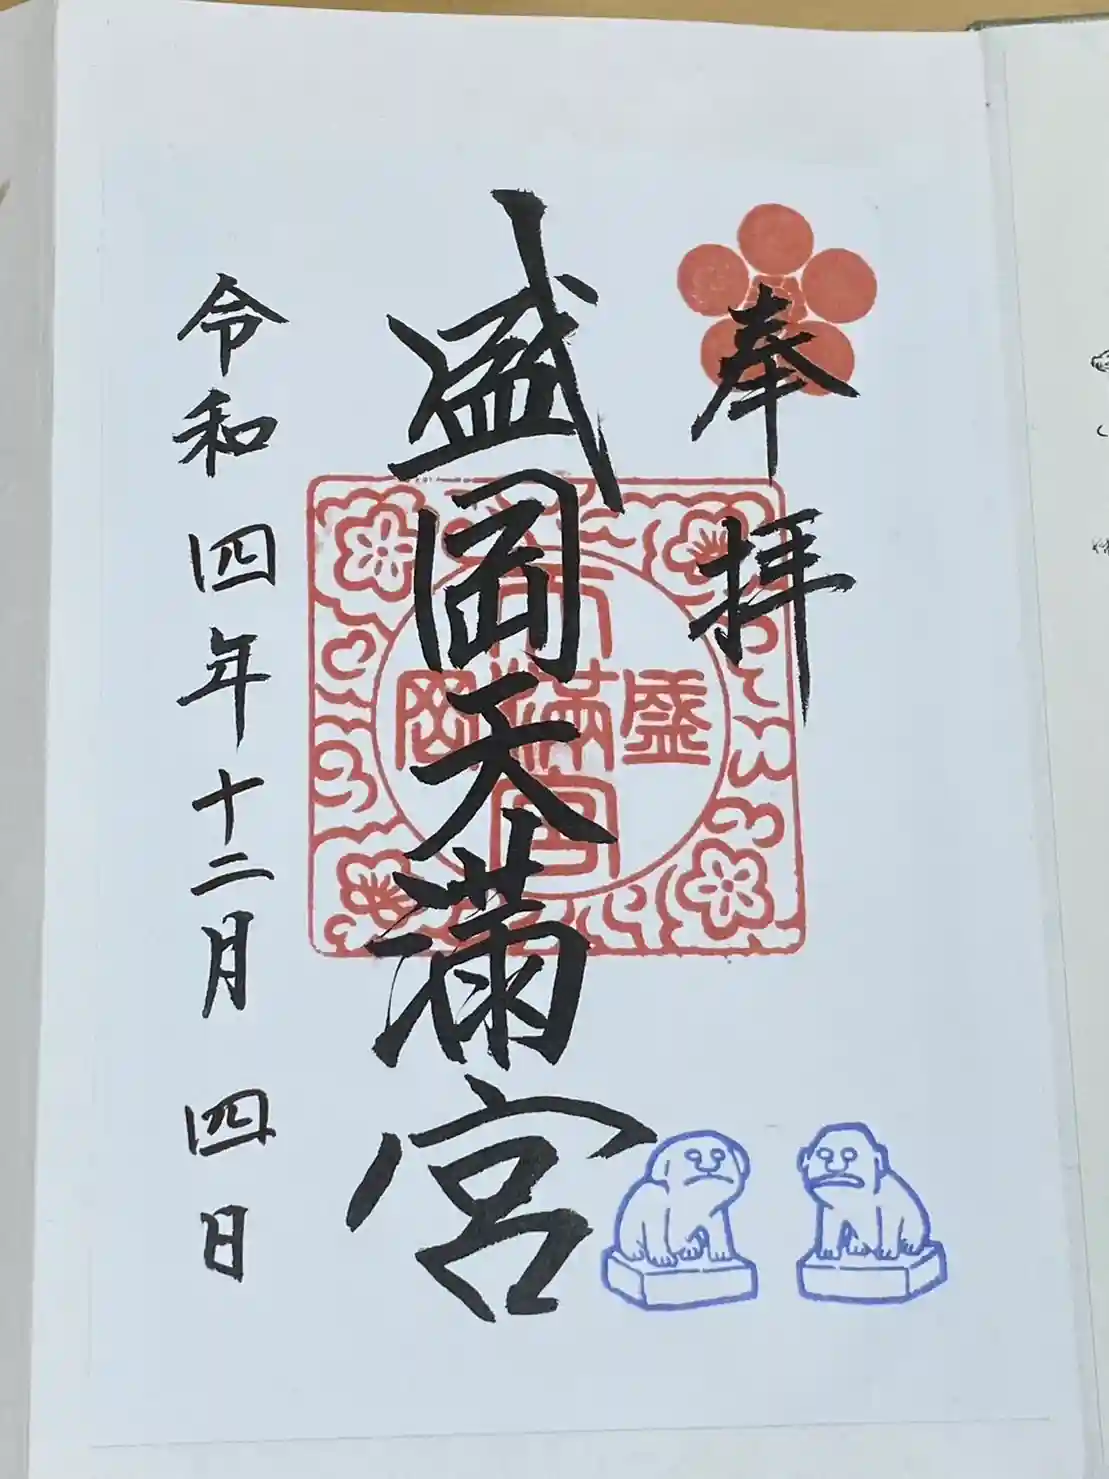 奉拝
盛岡天満宮
天満宮
盛
岡
令和四年十二月四日